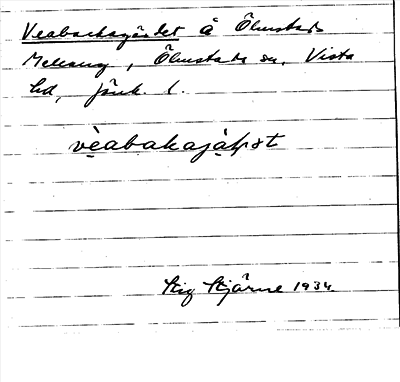 Veabackagärdet å Ölmstads
Mellang, Ölmstads sn, Vista
hd, Jönk. l.
vèabakajàḷət
Stig Stjärne 1934.